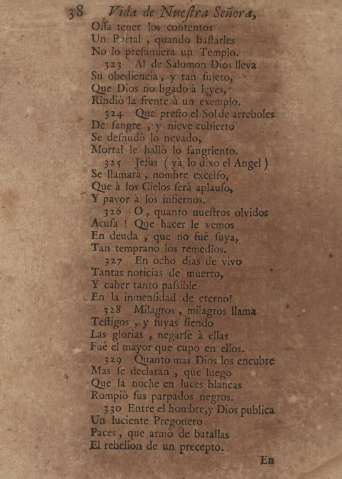 38 Vida de Nuestra Señora,
Ossa tener los contentos
Un Portal, quando bastarles
No lo presumiera un Templo.
323 Al de Salomon Dios lleva
Su obediencia, y tan sujeto,
Que Dios no ligado à leyes,
Rindiò la frente à un exemplo.
324 Que presto el Sol de arreboles
De sangre, y nieve cubierto
Se desnudò lo nevado,
Mortal le hallò lo sangriento.
325 Jesus (ya lo dixo el Angel)
Se llamarà, nombre excelso,
Que à los Cielos serà aplauso,
Y pavor à los infiernos.
326 O, quanto nuestros olvidos
Acusa! Que hacer le vemos
En deuda, que no fuè suya,
Tan temprano los remedios.
327 En ocho dias de vivo
Tantas noticias de muerto,
Y caber tanto passible
En la inmensidad de eterno!
328 Milagros, milagros llama
Testigos, y suyas siendo
Las glorias, negarse à ellas
Fuè el mayor que cupo en ellos.
329 Quanto mas Dios los encubre
Mas se declaran, que luego
Que la noche en luces blancas
Rompiò sus parpados negros.
330 Entre el hombre, y Dios publica
Un luciente Pregonero
Paces, que armò de batallas
El rebelion de un precepto.
En